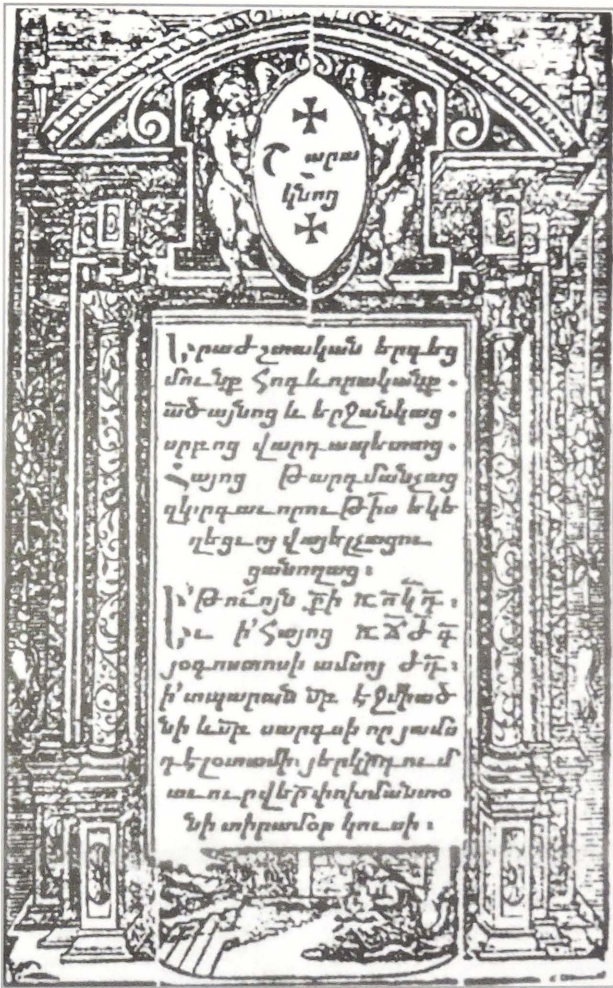 Շարա
կնոց
Երաժշտական երգեց
մունք հոգևորականք.
ած այնոց և երջանկաց.
սրբոց վարդապետաց.
Հայոց թարգմանչաց
զկարգաւորութիս եկե
ղեցւոյ վայելչացու
ցանողաց։
Ի՛ թուոյն քի ռոկդ։
Եւ ի՛ Հայոց ռճժգ
յօգոստոսի ամսոյ ժդ։
ի՛ տպարան սբ էջմիած
նի և սբ սարգսի որ յամս
դէլօտամի։ յերկրիդում
աւուր վերփոխման տօ
նի տիրամօր կուսի։